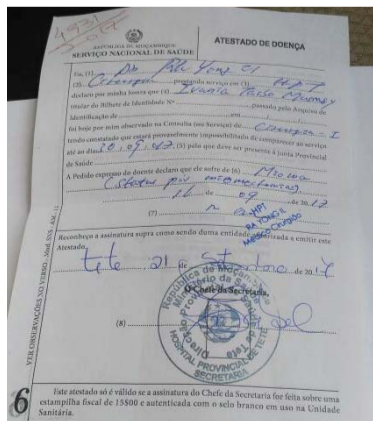 4931
2017
REPÚBLICA DE MOÇAMBIQUE
SERVIÇO NACIONAL DE SAÚDE
ATESTADO DE DOENÇA
Eu, (1) Dr
(2) Cirurgião prestando serviço em (3) HPT
declaro por minha honra que (4) Ivania
titular do Bilhete de Identidade Nº passado pelo Arquivo de
Identificação de em
foi hoje por mim observado na Consulta (ou Serviço) de Cirurgia - I
tendo constatado que estará provavelmente impossibilitado de comparecer ao serviço
até ao dia 30, 09, (5) pelo que deve ser presente à Junta Provincial
de Saúde
A Pedido expresso do doente declaro que ele sofre de (6) Mioma
(status pos miomectomia)
de 09 de 20 17
(7)
HPT
RA YONG IL
Médico Cirurgião
Reconheço a assinatura supra como sendo duma entidade autorizada a emitir este
Atestado.
Tete, 21 de de 20 17
O Chefe da Secretaria,
(8)
República de Moçambique
HOSPITAL PROVINCIAL DE TETE
SECRETARIA
VER OBSERVAÇÕES NO VERSO
6
Este atestado só é válido se a assinatura do Chefe da Secretaria for feita sobre uma
estampilha fiscal de 15$00 e autenticada com o selo branco em uso na Unidade
Sanitária.